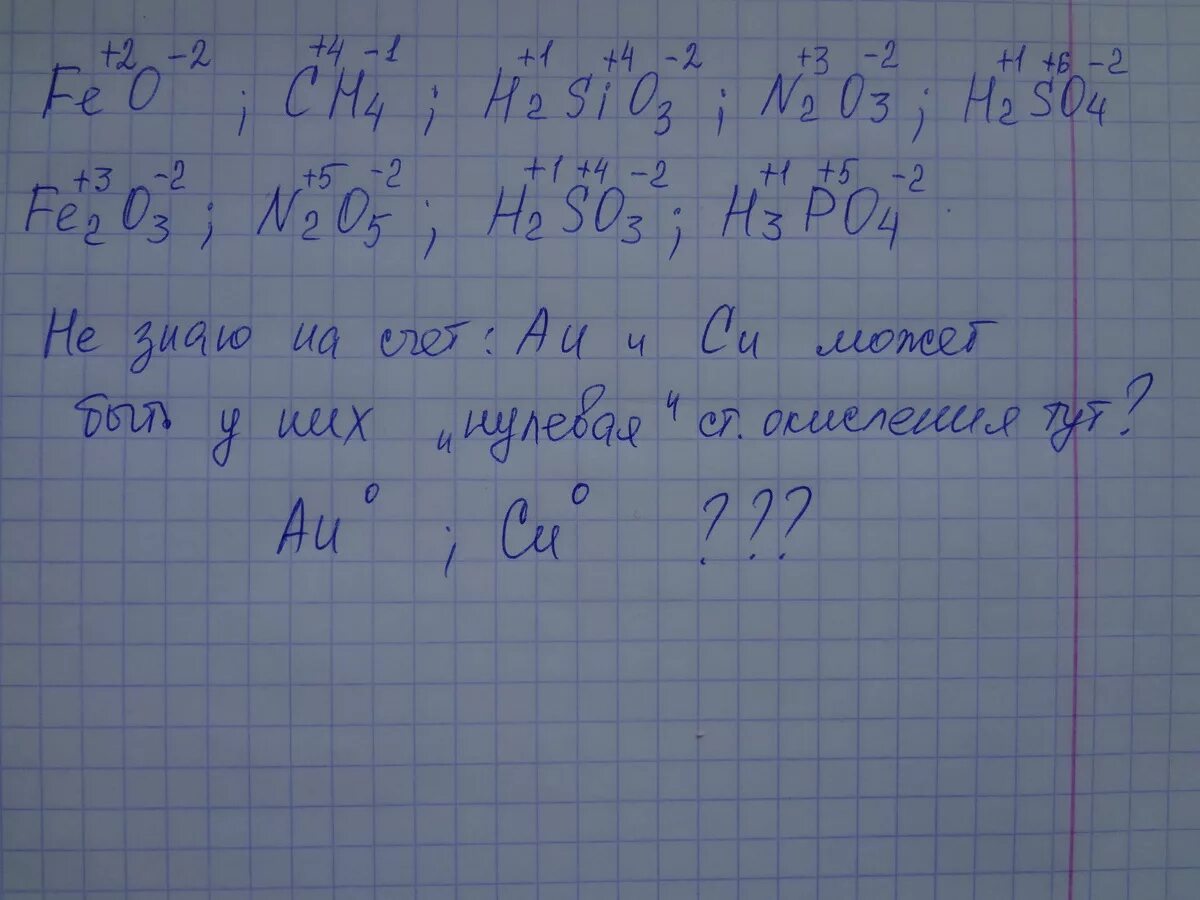 Fe⁺²O⁻² ; C⁺⁴H₄⁻¹ ; H₂⁺¹Si⁺⁴O₃⁻² ; N₂⁺³O₃⁻² ; H₂⁺¹S⁺⁶O₄⁻²
Fe₂⁺³O₃⁻² ; N₂⁺⁵O₅⁻² ; H₂⁺¹S⁺⁴O₃⁻² ; H₃⁺¹P⁺⁵O₄⁻²
Не знаю на счет: Au и Cu может
быть у них „нулевая“ ст. окисления тут?
Au⁰ ; Cu⁰ ???